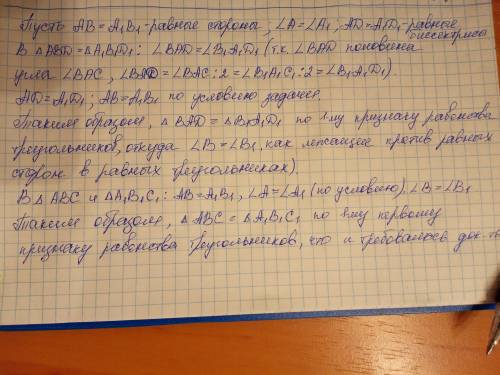 Пусть AB = A₁B₁ - равные стороны, ∠A = ∠A₁, AD = A₁D₁ - равные
биссектрисы
В △ABD = △A₁BD₁: ∠BAD = ∠B₁A₁D₁ (т.к. ∠BAD половина
угла ∠BAC, ∠BAD = ∠BAC:2 = ∠B₁A₁C₁:2 = ∠B₁A₁D₁).
AD = A₁D₁; AB = A₁B₁ по условию задания.
Таким образом, △BAD = △B₁A₁D₁ по 1му признаку равенства
треугольников, откуда ∠B = ∠B₁, как лежащие против равных
сторон в равных треугольниках).
В △ABC и △A₁B₁C₁: AB = A₁B₁, ∠A = ∠A₁ (по условию). ∠B = ∠B₁
Таким образом, △ABC = △A₁B₁C₁ по первому
признаку равенства треугольников, что и требовалось док-ть